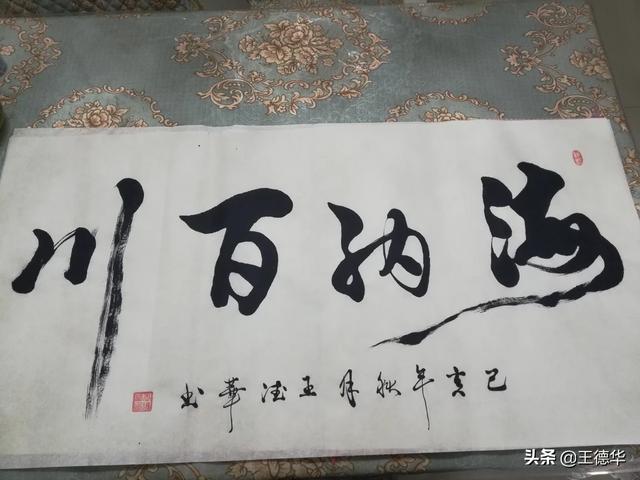 海纳百川
己亥年秋月王德華书
头条@王德华